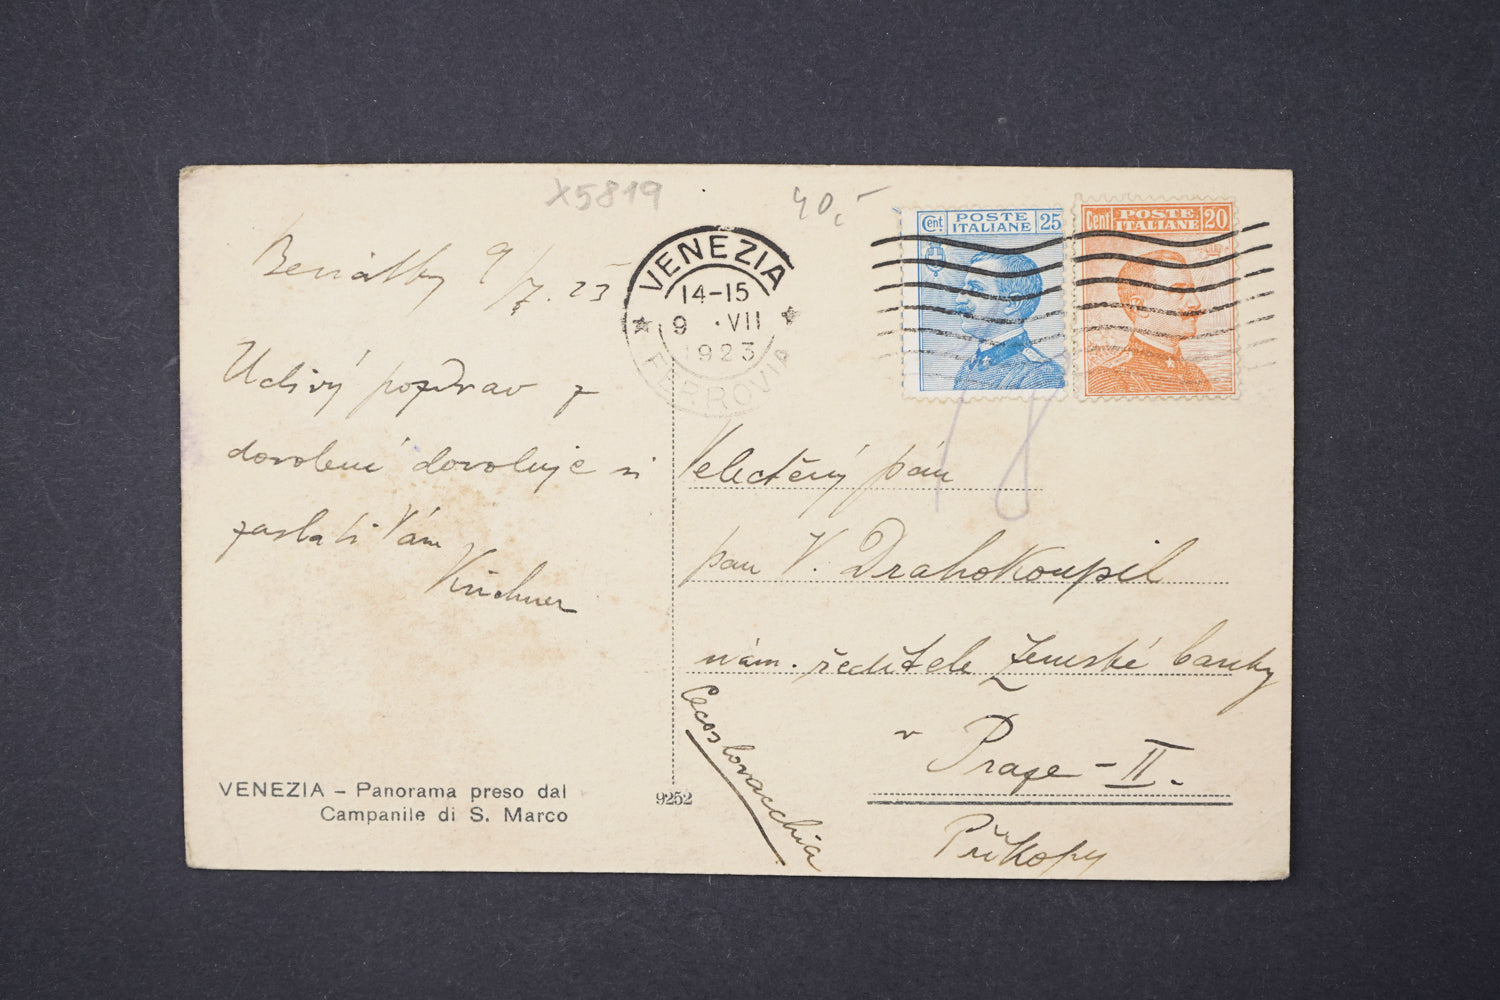 X5819
40,-
Benátky 9/7. 23
Uctivý pozdrav z
dovolené dovoluje si
zaslati Vám
Kirchner
VENEZIA – Panorama preso dal
Campanile di S. Marco
9252
VENEZIA
14-15
9 ·VII
1923
FERROVIA
Cent POSTE ITALIANE 25
Cent POSTE ITALIANE 20
18
Velectěný pán
pan V. Drahokoupil
nám. ředitele Zemské banky
v Praze - II.
Příkopy
Cecoslovacchia